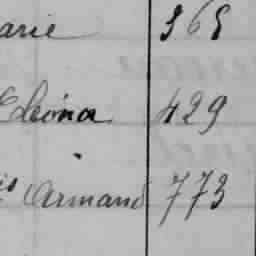 arie 365
Eléona 429
is Armand 773